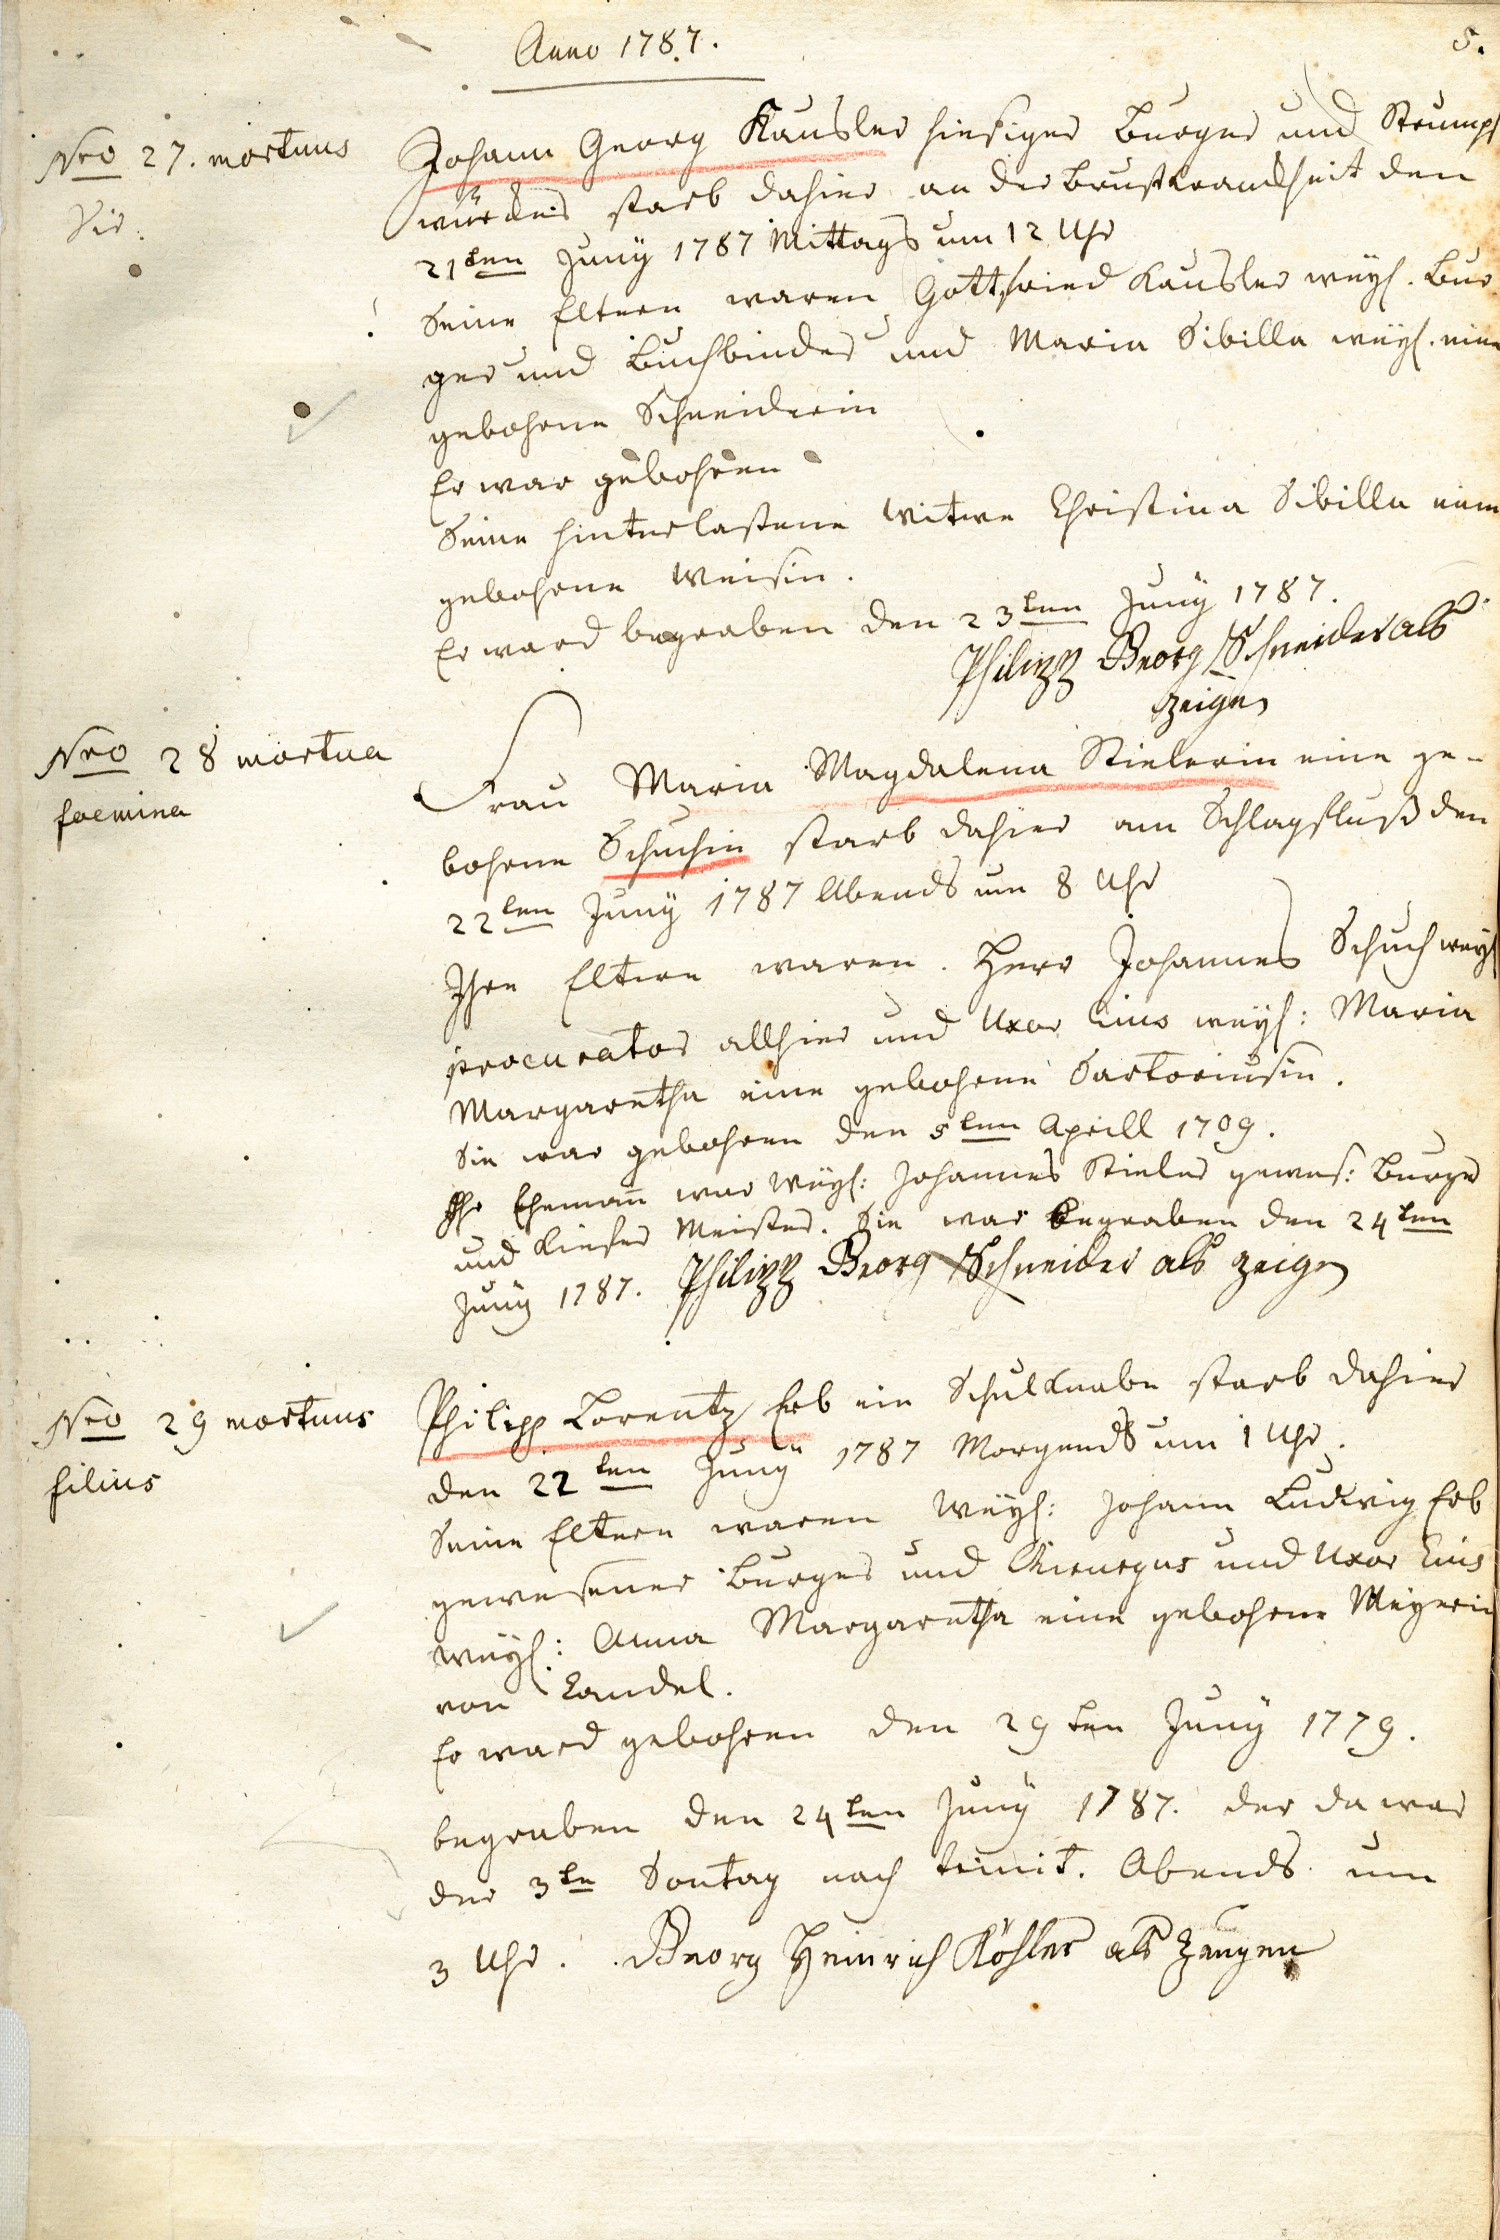 Anno 1787.
5.
Nro 27. mortuus
Vir.
Johann Georg Kausler hiesiger Burger und Strumpf
starb dahier an der Brustkrankheit den
21ten Juny 1787 Mittags um 12 Uhr
Seine Eltern waren Gottfried Kausler weyl. Bur
ger und Buchbinder und Maria Sibilla weyl. eine
gebohrne Schneiderin
Er war gebohren
Seine hinterlaßene Witwe Christina Sibilla eine
gebohrne Weisin.
Er ward begraben den 23ten Juny 1787.
Philipp Georg Schneider als
zeigen
Nro 28 mortua
foemina
Frau Maria Magdalena Stielerin eine ge-
bohrne Schuchin starb dahier am Schlagfluß den
22ten Juny 1787 Abends um 8 Uhr
Ihre Eltern waren. Herr Johannes Schuch weyl
procurator allhier und Uxor Eius weyl: Maria
Margaretha eine gebohrne Sartoriusin.
Sie war gebohren den 5ten Aprill 1709.
Ihr Ehemañ war weyl: Johannes Stieler gewes: Burger
und Kiefer Meister. Sie war begraben den 24ten
Juny 1787. Philipp Georg Schneider als zeigen
Nro 29 mortuus
filius
Philipp Lorentz Erb ein Schulknabe starb dahier
den 22ten Juny 1787 Morgends um 1 Uhr.
Seine Eltern waren weyl: Johann Ludwig Erb
gewesener Burger und Chirurgus und Uxor Eius
weyl: Anna Margaretha eine gebohrne Meyerin
von Candel.
Er ward gebohren den 29ten Juny 1779.
begraben den 24ten Juny 1787. der da war
der 3te Sontag nach trinit. Abends um
3 Uhr. Georg Heinrich Köhler als Zeugen